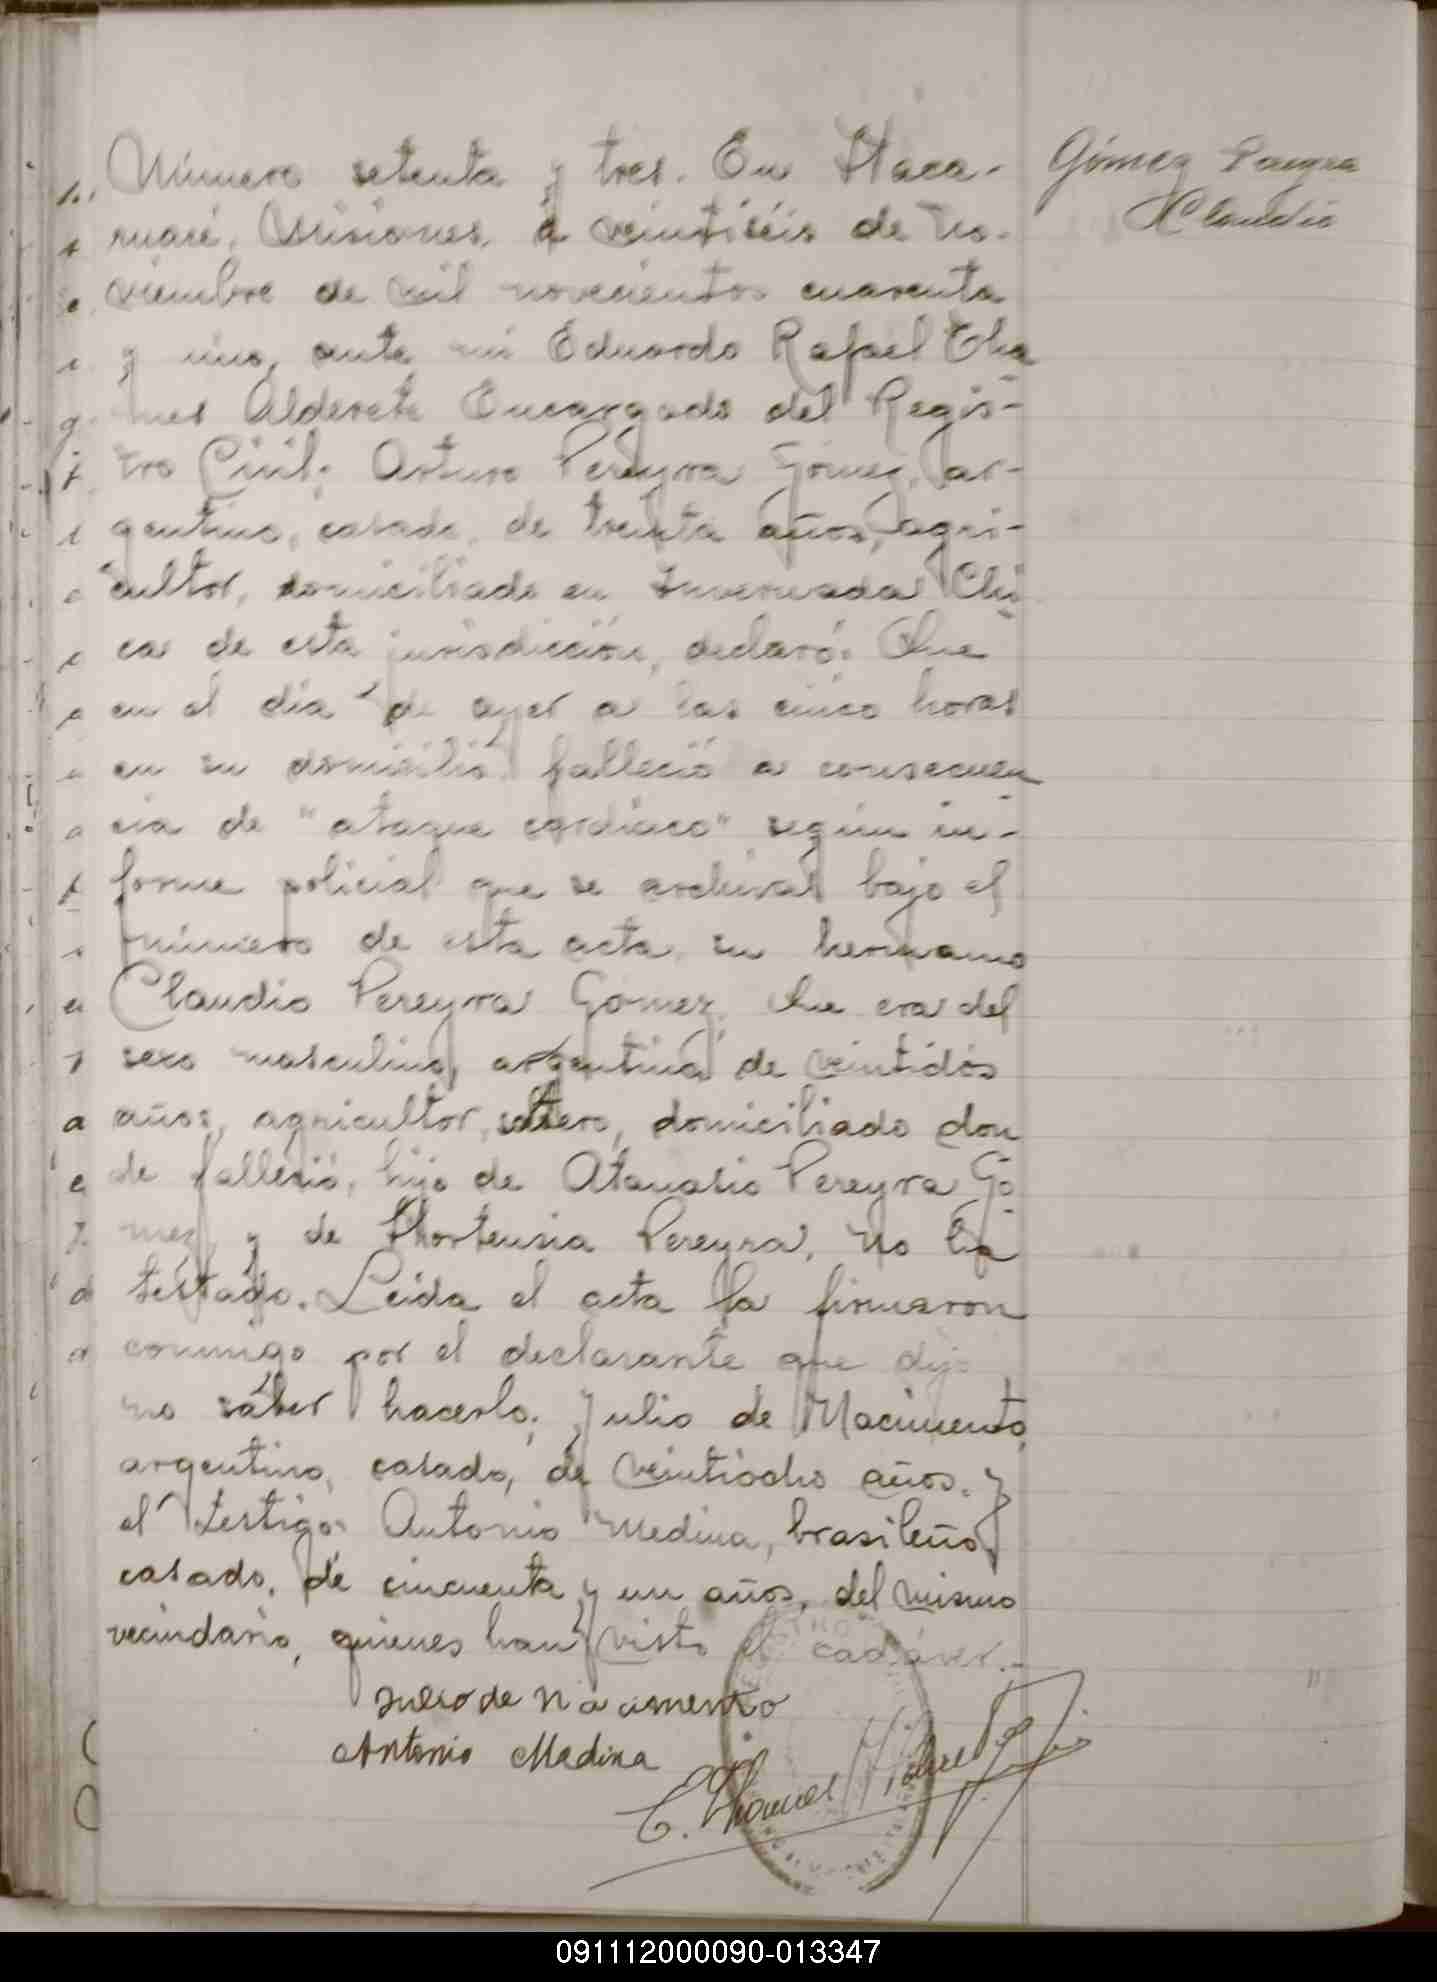 Número setenta y tres. En Itaca-
ruaré, Misiones, a veintiséis de no-
viembre de mil novecientos cuarenta
y uno, ante mí Eduardo Rafael Tha
mes Alderete Encargado del Regis-
tro Civil; Arturo Pereyra Gómez, ar-
gentino, casado, de treinta años, agri-
cultor, domiciliado en Invernada Chi
ca de esta jurisdicción, declaró: Que
en el día de ayer a las cinco horas
en su domicilio falleció a consecuen
cia de "ataque cardíaco" según in-
forme policial que se archiva bajo el
número de esta acta, su hermano
Claudio Pereyra Gómez. Que era del
sexo masculino, argentino de veintidós
años, agricultor, soltero, domiciliado don
de falleció, hijo de Atanasio Pereyra Gó
mez y de Hortensia Pereyra. No ha
testado. Leída el acta la firmaron
conmigo por el declarante que dijo
no saber hacerlo, Julio de Nacimento,
argentino, casado, de veintiocho años, y
el testigo Antonio Medina, brasileño,
casado, de cincuenta y un años, del mismo
vecindario, quienes han visto el cadáver.-
Julio de Nacimento
Antonio Medina
E. Thames Alderete
Gómez Pereyra
Claudio
091112000090-013347